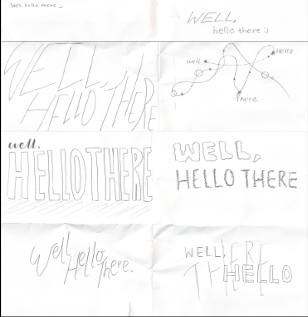 Well, hello there :)
WELL,
hello there :)
WELL,
HELLO THERE
well
hello
there
well.
HELLO THERE
WELL,
HELLO THERE
Well,
Hello
there.
WELL,
THERE
HELLO